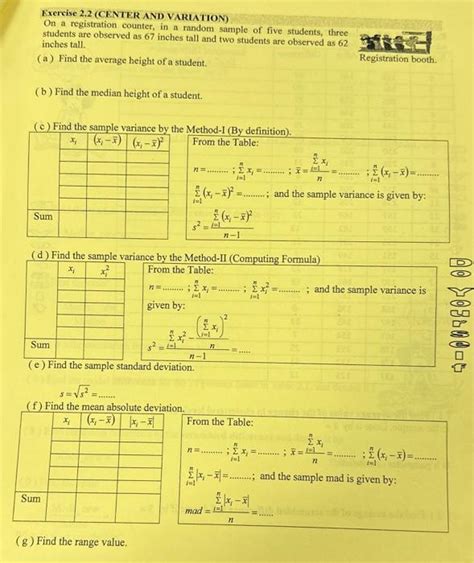 Exercise 2.2 (CENTER AND VARIATION)
On a registration counter, in a random sample of five students, three
students are observed as 67 inches tall and two students are observed as 62
inches tall.
Registration booth.
( a ) Find the average height of a student.
( b ) Find the median height of a student.
( c ) Find the sample variance by the Method-I (By definition).
xᵢ (xᵢ − x̄) (xᵢ − x̄)²
Sum
From the Table:
n = ........ ; Σⁿᵢ₌₁ xᵢ = ........ ; x̄ = Σⁿᵢ₌₁ xᵢ / n = ........ ; Σⁿᵢ₌₁ (xᵢ − x̄) = ........
Σⁿᵢ₌₁ (xᵢ − x̄)² = ........ ; and the sample variance is given by:
s² = Σⁿᵢ₌₁ (xᵢ − x̄)² / n−1
( d ) Find the sample variance by the Method-II (Computing Formula)
xᵢ xᵢ²
Sum
From the Table:
n = ........ ; Σⁿᵢ₌₁ xᵢ = ........ ; Σⁿᵢ₌₁ xᵢ² = ........ ; and the sample variance is
given by:
s² = (Σⁿᵢ₌₁ xᵢ² − (Σⁿᵢ₌₁ xᵢ)² / n) / n−1 = .....
( e ) Find the sample standard deviation.
s = √s² = .......
( f ) Find the mean absolute deviation.
xᵢ (xᵢ − x̄) |xᵢ − x̄|
Sum
From the Table:
n = ........ ; Σⁿᵢ₌₁ xᵢ = ........ ; x̄ = Σⁿᵢ₌₁ xᵢ / n = ........ ; Σⁿᵢ₌₁ (xᵢ − x̄) = ........
Σⁿᵢ₌₁ |xᵢ − x̄| = ........ ; and the sample mad is given by:
mad = Σⁿᵢ₌₁ |xᵢ − x̄| / n = .....
( g ) Find the range value.
DO YOURSELF